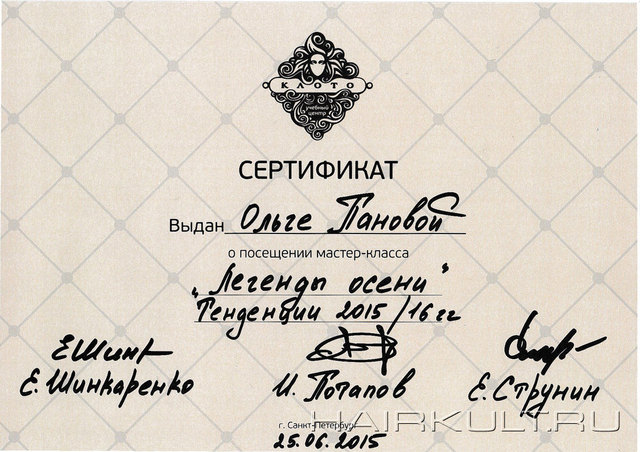 КЛОТО
учебный
центр
СЕРТИФИКАТ
Выдан Ольге Пановой
о посещении мастер-класса
"Легенды осени"
Тенденции 2015/16 гг
ЕШинк
Е. Шинкаренко И. Потапов Е. Струнин
г. Санкт-Петербург
25.06.2015
HAIRKULT.RU